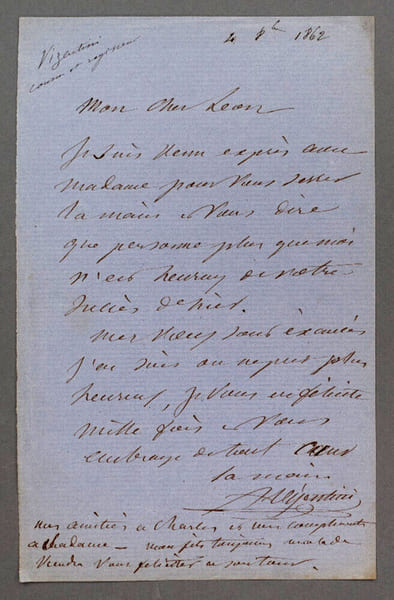 Vizentini
4 8bre 1862
Mon cher Leon
Je suis venu exprès avec
madame pour vous serrer
la main et vous dire
que personne plus que moi
n'est heureux de votre
succès de hier.
mes voeux sont exaucés
j'en suis on ne peut plus
heureux, je vous en félicite
mille fois et vous
embrasse de tout coeur
la main
A Vizentini
mes amitiés a Charles et mes compliments
a Madame - mon fils toujours malade
viendra vous feliciter a son tour.